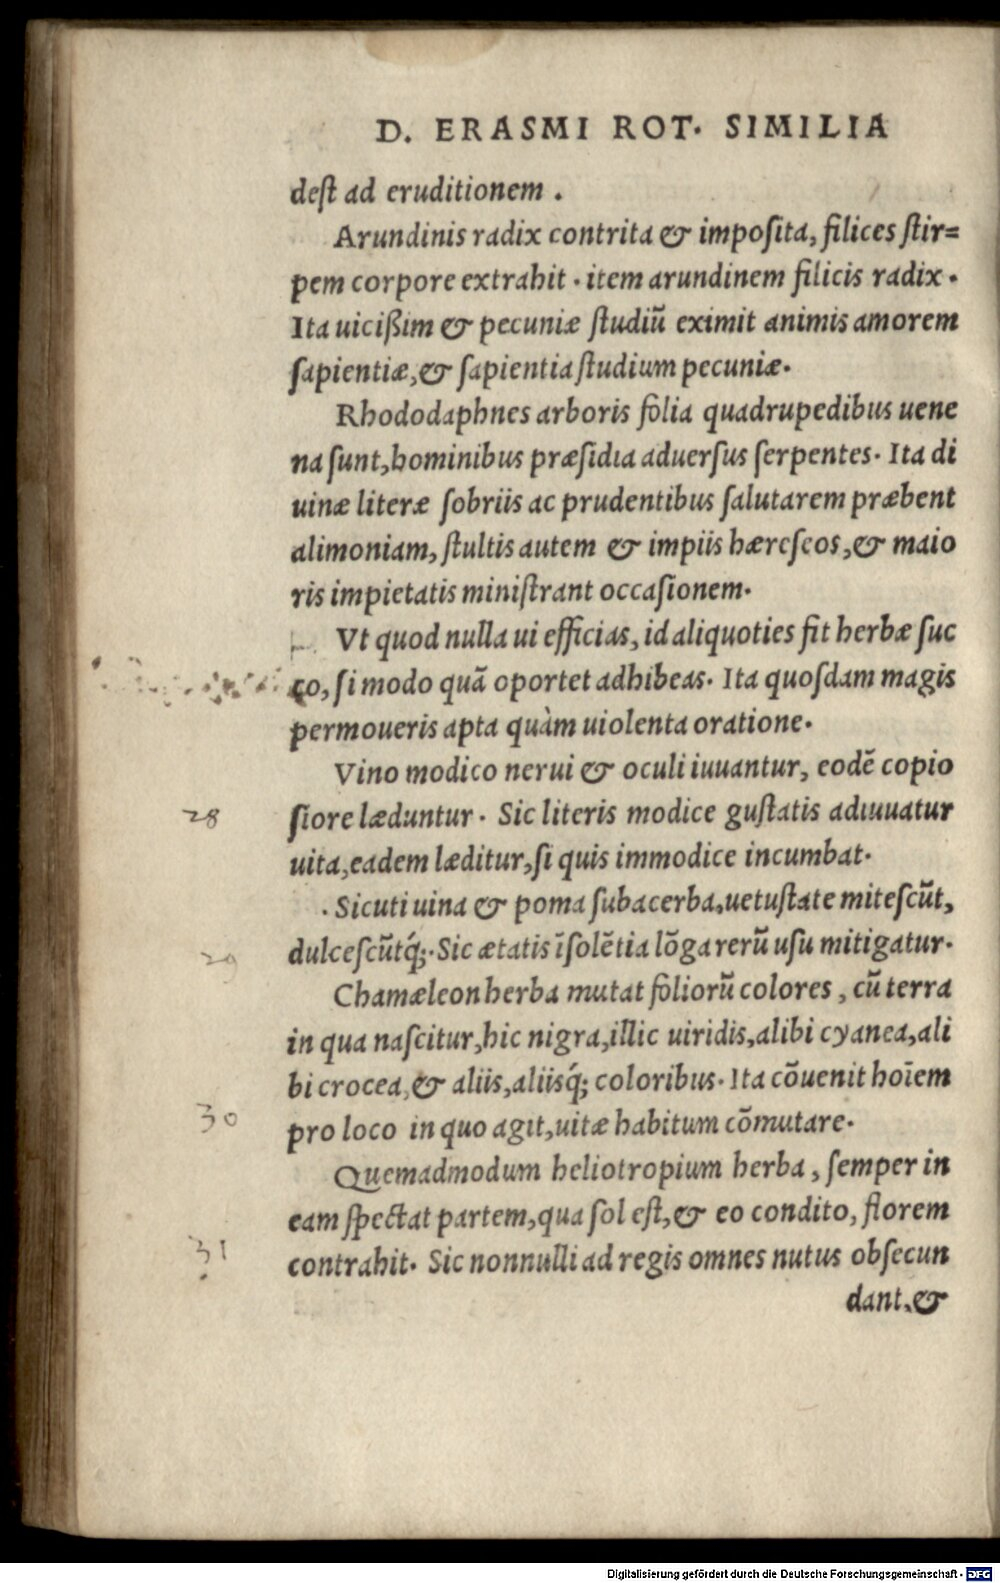 D. ERASMI ROT. SIMILIA
deſt ad eruditionem .
Arundinis radix contrita & impoſita, filices ſtir=
pem corpore extrahit . item arundinem filicis radix .
Ita uicißim & pecuniæ ſtudiũ eximit animis amorem
ſapientiæ,& ſapientia ſtudium pecuniæ.
Rhododaphnes arboris folia quadrupedibus uene
na ſunt,hominibus præſidia aduerſus ſerpentes. Ita di
uinæ literæ ſobriis ac prudentibus ſalutarem præbent
alimoniam, ſtultis autem & impiis hæreſeos,& maio
ris impietatis miniſtrant occaſionem.
Vt quod nulla ui efficias, id aliquoties fit herbæ ſuc
co, ſi modo quã oportet adhibeas. Ita quoſdam magis
permoueris apta quàm uiolenta oratione.
Vino modico nerui & oculi iuuantur, eodẽ copio
28
ſiore læduntur . Sic literis modice guſtatis adiuuatur
uita,eadem læditur,ſi quis immodice incumbat.
. Sicuti uina & poma ſubacerba,uetuſtate miteſcũt,
29
dulceſcũtq́;. Sic ætatis ĩſolẽtia lõga rerũ uſu mitigatur.
Chamæleon herba mutat foliorũ colores , cũ terra
in qua naſcitur,hic nigra,illic uiridis,alibi cyanea,ali
bi crocea,& aliis,aliisq́; coloribus. Ita cõuenit hoĩem
30
pro loco in quo agit,uitæ habitum cõmutare.
Quemadmodum heliotropium herba , ſemper in
eam ſpectat partem,qua ſol eſt,& eo condito, florem
31
contrahit. Sic nonnulli ad regis omnes nutus obſecun
dant,&
Digitalisierung gefördert durch die Deutsche Forschungsgemeinschaft - DFG